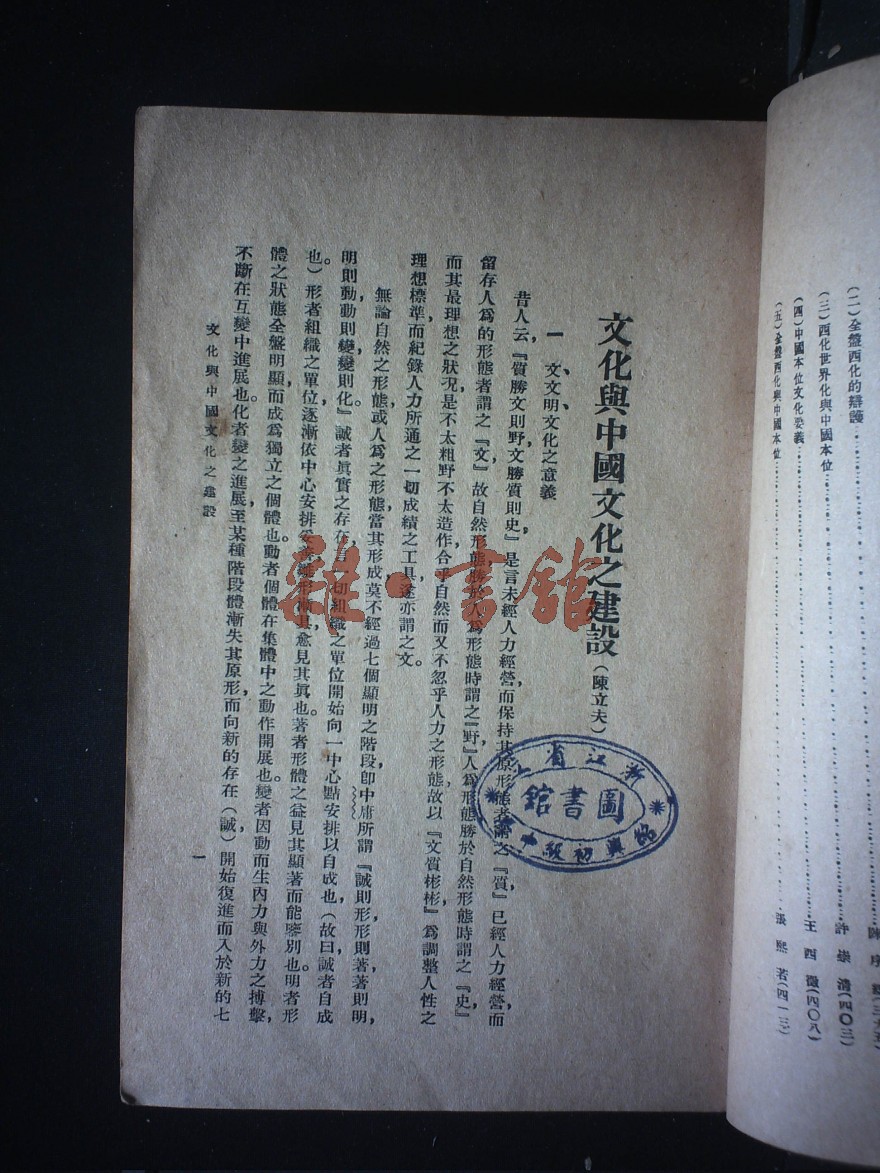 (二)全盤西化的辯護……陳序經
(三)西化世界化與中國本位……許崇清(四〇三)
(四)中國本位文化要義……王西徵(四〇八)
(五)全盤西化與中國本位……張熙若(四一三)
文化與中國文化之建設(陳立夫)
一 文、文明、文化之意義
昔人云,『質勝文則野,文勝質則史』是言未經人力經營而保持其原形態者謂之『質』,已經人力經營而
留存人爲的形態者謂之『文』,故自然形態勝於人爲形態時謂之『野』,人爲形態勝於自然形態時謂之『史』
而其最理想之狀況,是不太粗野,不太造作,合乎自然而又不忽乎人力之形態,故以『文質彬彬』爲調整人性之
理想標準,而紀錄人力所通之一切成績之工具,遂亦謂之文。
無論自然之形態或人爲之形態,當其形成,莫不經過七個顯明之階段,卽中庸所謂『誠則形,形則著,著則明,
明則動,動則變,變則化。』誠者眞實之存在,言一切組織之單位開始向一中心點安排以自成也(故曰誠者自成
也。)形者組織之單位,逐漸依中心安排妥善,雛形漸具,愈見其眞也。著者形體之益見其顯著而能鑒別也。明者形
體之狀態全盤明顯,而成爲獨立之個體也。動者個體在集體中之動作開展也。變者因動而生內力與外力之搏擊,
不斷在互變中進展也。化者變之進展,至某種階段,體漸失其原形,而向新的存在(誠)開始復進而入於新的七
文化與中國文化之建設
一
雜·書館
浙江省立
圖書館
紹興初級中學